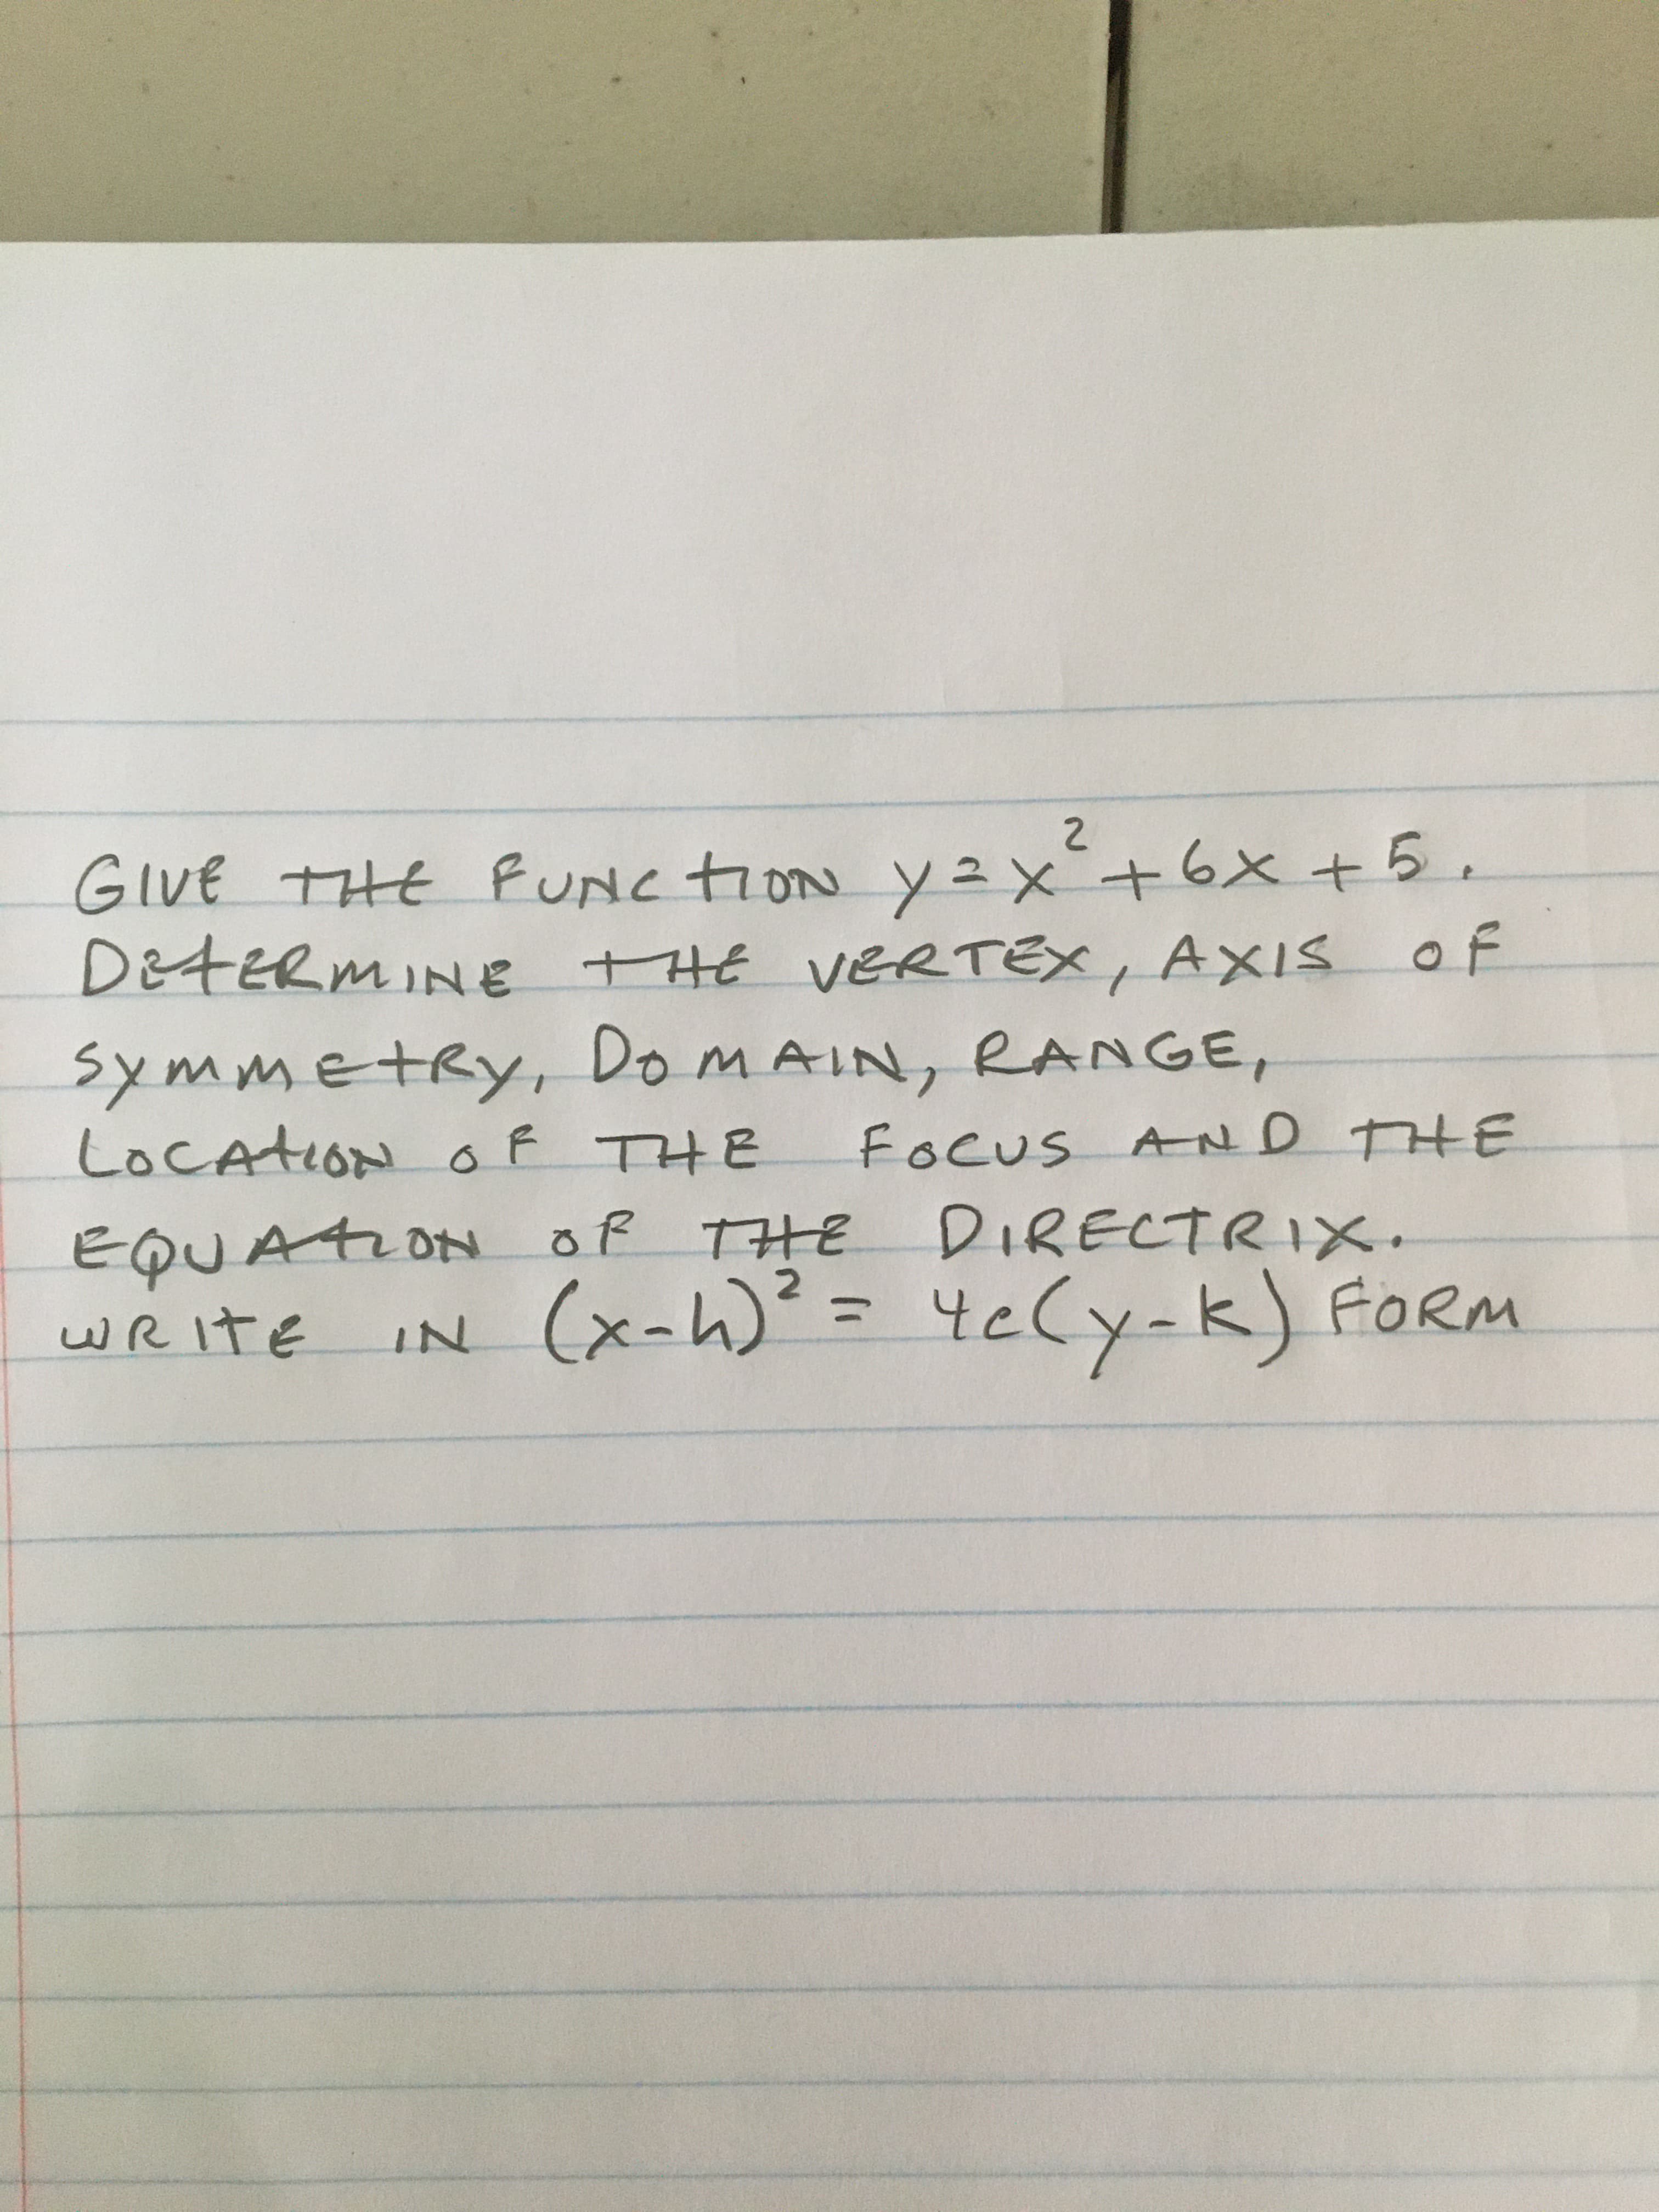 GIVE THE FUNCTION y=x²+6x+5.
DETERMINE THE VERTEX, AXIS OF
SYMMETRY, DOMAIN, RANGE,
LOCATION OF THE FOCUS AND THE
EQUATION OF THE DIRECTRIX.
WRITE IN (x-h)² = 4c(y-k) FORM